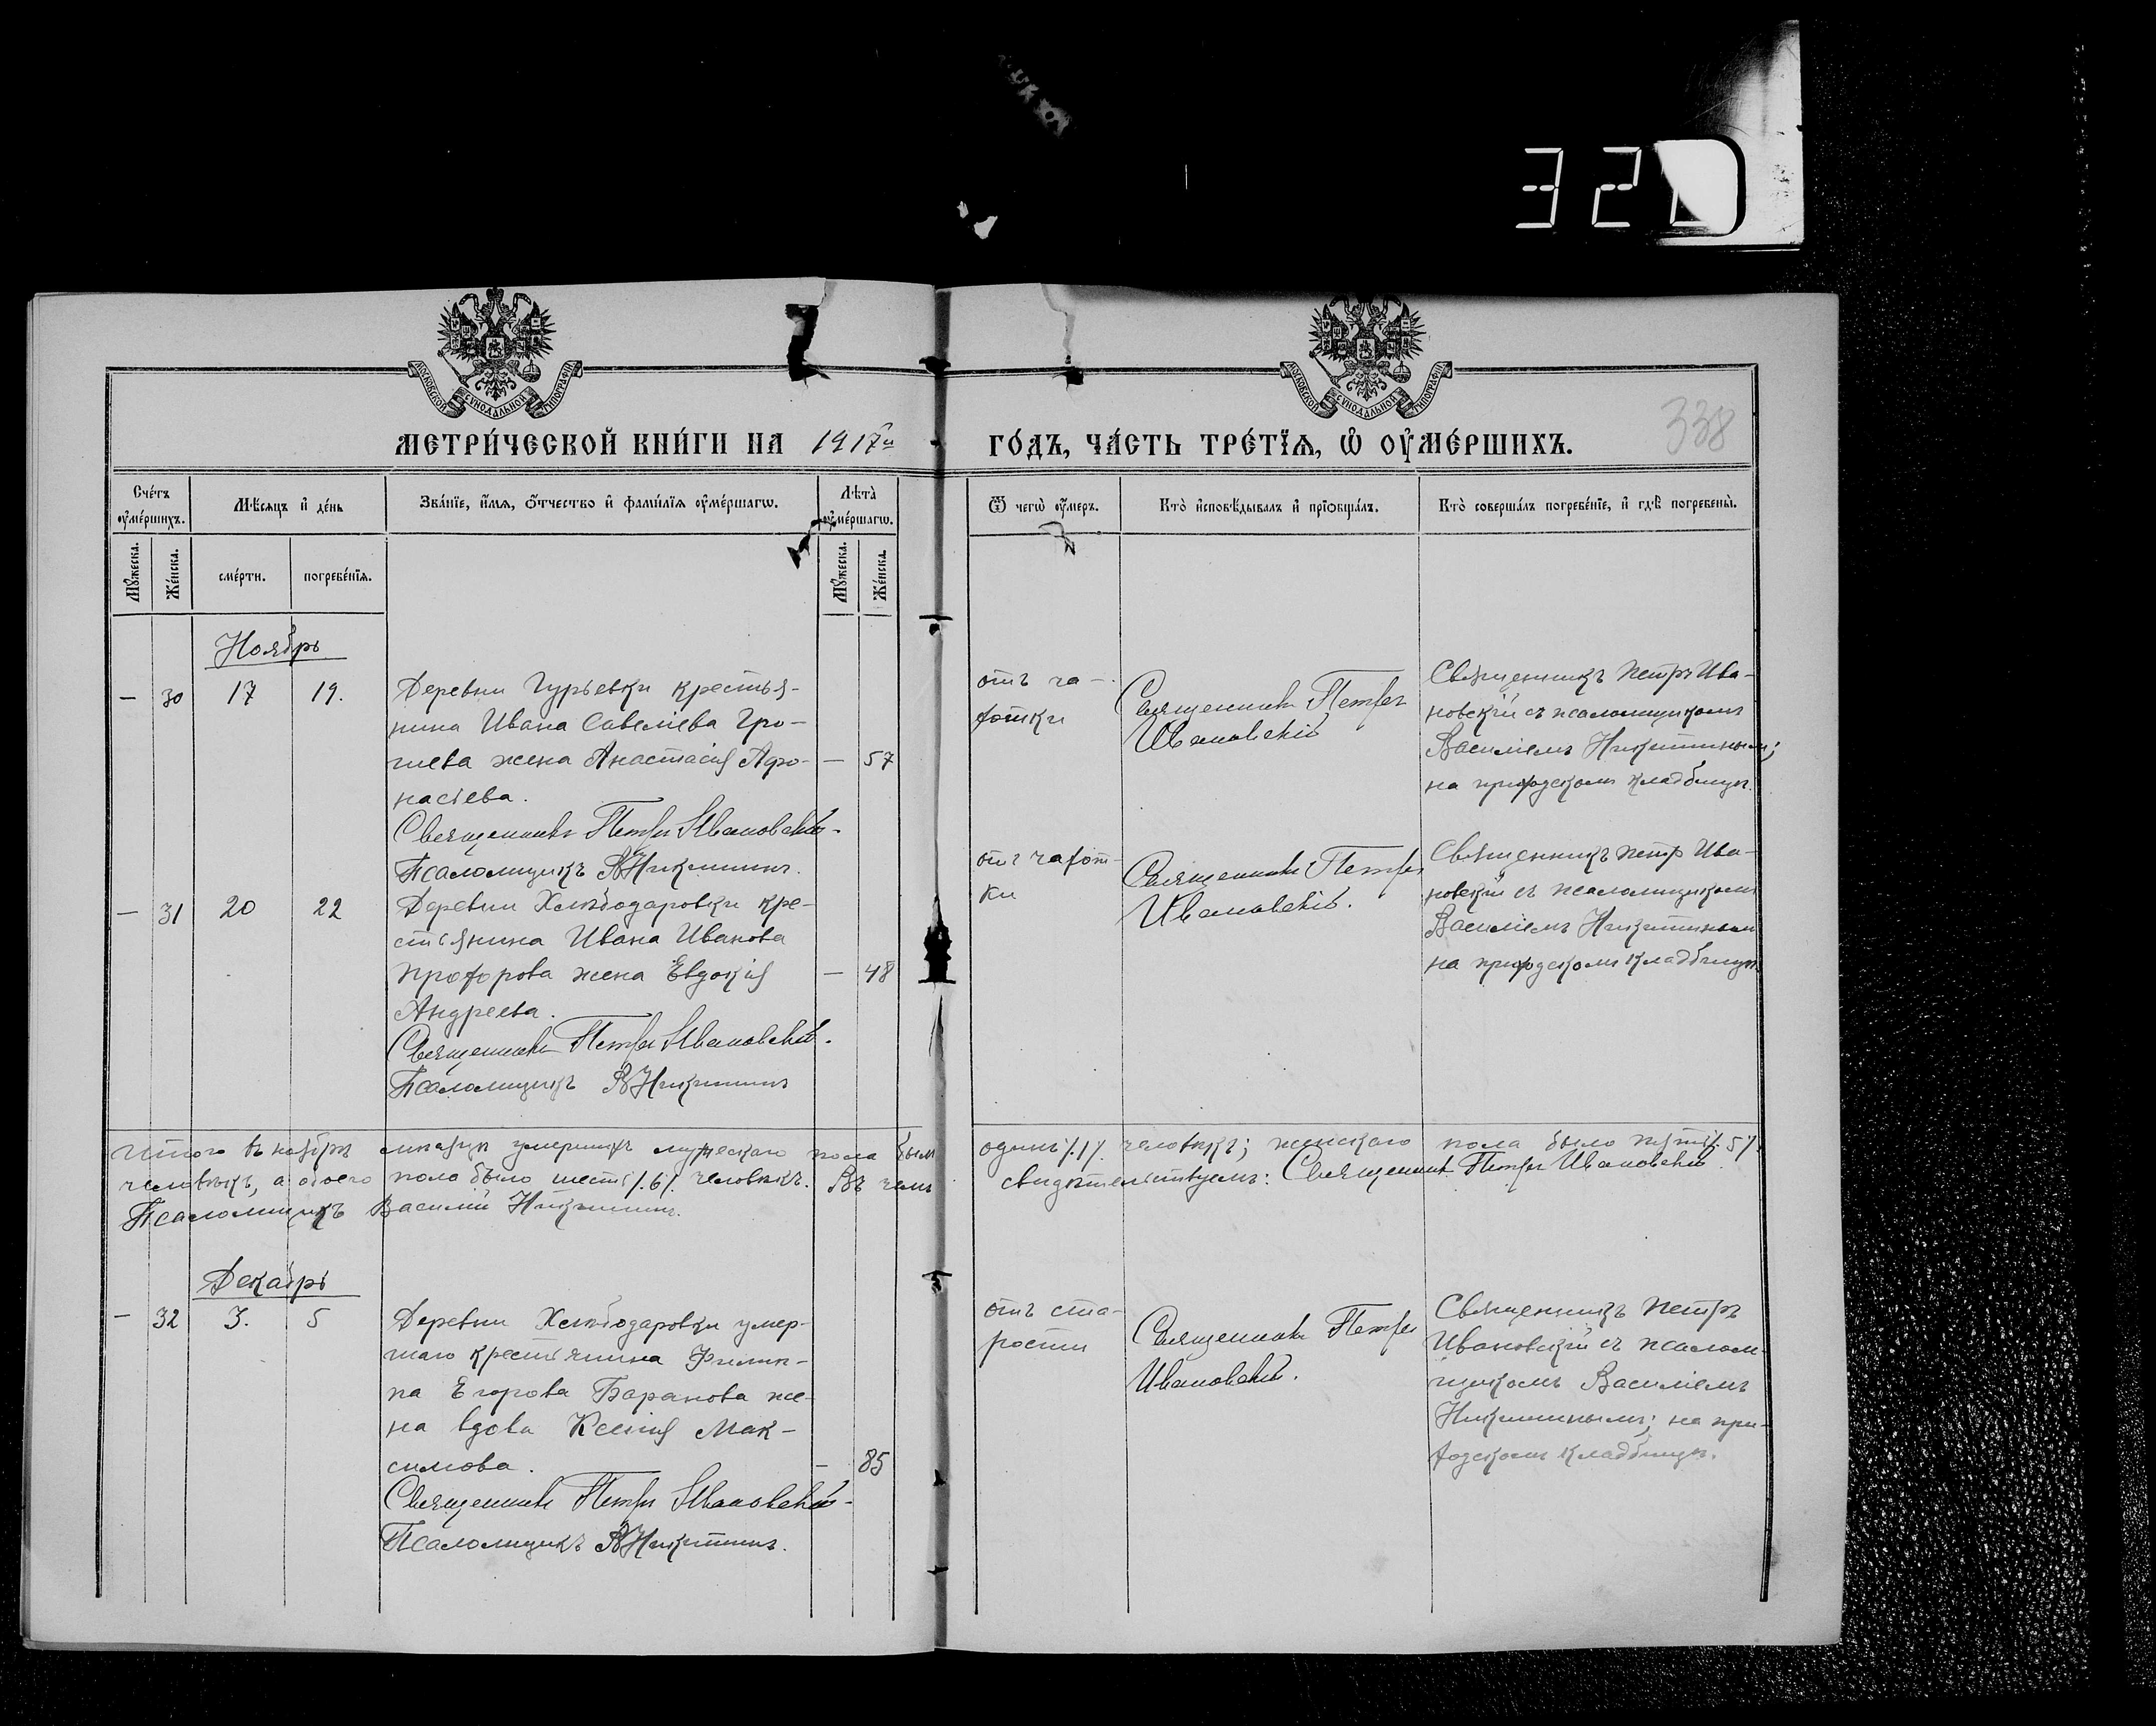 320
МОСКОВСКОЙ СѴНОДАЛЬНОЙ ТИПОГРАФІИ
МОСКОВСКОЙ СѴНОДАЛЬНОЙ ТИПОГРАФІИ
МЕТРИ́ЧЕСКОЙ КНИ́ГИ НА 1917й ГО́ДЪ, ЧА́СТЬ ТРЕ́ТЇѦ, Ѽ ОУ҆МЕ́РШИХЪ.
338
Сче́тъ оу҆ме́ршихъ.
Мѣ́сѧцъ и҆ де́нь
Зва́нїе, и҆́мѧ, ѻ҆́тчество и҆ фами́лїѧ оу҆ме́ршагѡ.
Лѣ́та оу҆ме́ршагѡ.
Ѿ чегѡ̀ оу҆́меръ.
Кто̀ и҆сповѣ́дывалъ и҆ прїѡбща́лъ.
Кто̀ соверша́лъ погребе́нїе, и҆ гдѣ̀ погребены̀.
Мꙋ́жеска.
Же́нска.
сме́рти.
погребе́нїѧ.
Мꙋ́жеска.
Же́нска.
Ноябрь
— 30 17 19.
Деревни Гурьевки крестья-
нина Ивана Савеліева Гро-
чева жена Анастасія Афо-
насіева.
— 57
Священникъ Петръ Ивановскій.
Псаломщикъ В Никитинъ.
отъ ча-
хотки
Священникъ Петръ
Ивановскій
Священникъ Петръ Ива-
новскій съ псаломщикомъ
Василіемъ Никитинымъ;
на приходскомъ кладбищѣ.
— 31 20 22
Деревни Хлѣбодаровки кре-
стьянина Ивана Иванова
Прохорова жена Евдокія
Андреева.
— 48
Священникъ Петръ Ивановскій.
Псаломщикъ В Никитинъ
отъ чахот-
ки
Священникъ Петръ
Ивановскій.
Священникъ Петръ Ива-
новскій съ псаломщикомъ
Василіемъ Никитинымъ
на приходскомъ кладбищѣ.
Итого въ ноябрѣ мѣсяцѣ умершихъ мужескаго пола былъ одинъ /.1/. человѣкъ; женскаго пола было пять /.5/.
человѣкъ, а обоего пола было шесть /.6/. человѣкъ. Въ чемъ свидѣтельствуемъ: Священникъ Петръ Ивановскій.
Псаломщикъ Василій Никитинъ.
Декабрь
— 32 3. 5
Деревни Хлѣбодаровки умер-
шаго крестьянина Филип-
па Егорова Баранова же-
на вдова Ксенія Мак-
симова.
— 85
Священникъ Петръ Ивановскій.
Псаломщикъ В Никитинъ.
отъ ста-
рости
Священникъ Петръ
Ивановскій.
Священникъ Петръ
Ивановскій съ псалом-
щикомъ Василіемъ
Никитинымъ; на при-
ходскомъ кладбищѣ.